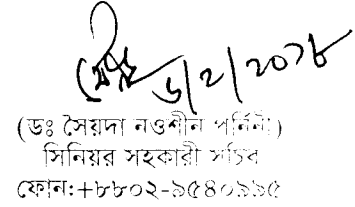 ৬/২/২০১৮
(ডঃ সৈয়দা নওশীন পর্ণিনী)
সিনিয়র সহকারী সচিব
ফোন:+৮৮০২-৯৫৪০৯৯৫